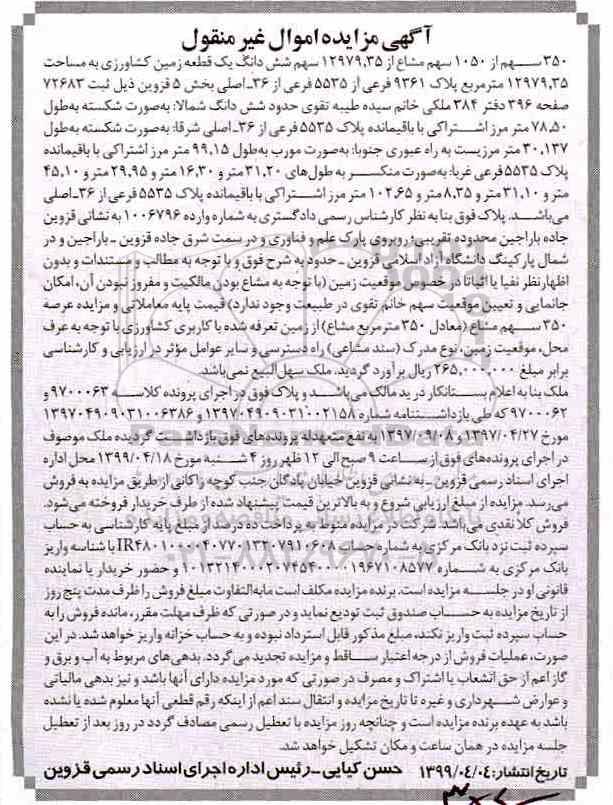 آگهی مزایده اموال غیر منقول
۳۵۰ سهم از ۱۰۵۰ سهم مشاع از ۱۲۹۷۹,۳۵ سهم شش دانگ یک قطعه زمین کشاورزی به مساحت
۱۲۹۷۹,۳۵ مترمربع پلاک ۹۳۶۱ فرعی از ۵۵۳۵ فرعی از ۳۶ـ اصلی بخش ۵ قزوین ذیل ثبت ۷۲۶۸۳
صفحه ۳۹۶ دفتر ۳۸۴ ملکی خانم سیده طیبه تقوی حدود شش دانگ شمالا: به‌صورت شکسته به‌طول
۷۸,۵۰ متر مرز اشتراکی با باقیمانده پلاک ۵۵۳۵ فرعی از ۳۶ـ اصلی شرقا: به‌صورت شکسته به‌طول
۳۰,۱۳۷ متر مرزیست به راه عبوری جنوبا: به‌صورت مورب به‌طول ۹۹,۱۵ متر مرز اشتراکی با باقیمانده
پلاک ۵۵۳۵ فرعی غربا: به‌صورت منکسر به طول‌های ۳۱,۲۰ متر و ۱۶,۳۰ متر و ۲۹,۹۵ متر و ۴۵,۱۰
متر و ۳۱,۱۰ متر و ۸,۳۵ متر و ۱۰۲,۶۵ متر مرز اشتراکی با باقیمانده پلاک ۵۵۳۵ فرعی از ۳۶ـ اصلی
می‌باشد. پلاک فوق بنا به نظر کارشناس رسمی دادگستری به شماره وارده ۱۰۰۶۷۹۶ به نشانی قزوین
جاده باراجین محدوده تقریبی: روبروی پارک علم و فناوری و در سمت شرق جاده قزوین ـ باراجین و در
شمال پارکینگ دانشگاه آزاد اسلامی قزوین ـ حدود به شرح فوق و با توجه به مطالب و مستندات و بدون
اظهارنظر نفیا یا اثباتا در خصوص موقعیت زمین (با توجه به مشاع بودن مالکیت و مفروز نبودن آن، امکان
جانمایی و تعیین موقعیت سهم خانم تقوی در طبیعت وجود ندارد) قیمت پایه معاملاتی و مزایده عرصه
۳۵۰ سهم مشاع (معادل ۳۵۰ مترمربع مشاع) از زمین تعرفه شده با کاربری کشاورزی با توجه به عرف
محل، موقعیت زمین، نوع مدرک (سند مشاعی) راه دسترسی و سایر عوامل مؤثر در ارزیابی و کارشناسی
برابر مبلغ ۲۶۵,۰۰۰,۰۰۰ ریال برآورد گردید. ملک سهل‌البیع نمی‌باشد.
ملک بنا به اعلام بستانکار در ید مالک می‌باشد و پلاک فوق در اجرای پرونده کلاسه ۹۷۰۰۰۶۳ و
۹۷۰۰۰۶۲ که طی بازداشتنامه شماره ۱۳۹۷۰۴۹۰۹۰۳۱۰۰۲۱۵۸ و ۱۳۹۷۰۴۹۰۹۰۳۱۰۰۶۳۸۶
مورخ ۱۳۹۷/۰۴/۲۷ و ۱۳۹۷/۰۹/۰۸ به نفع متعهدله پرونده‌های فوق بازداشت گردیده ملک موصوف
در اجرای پرونده‌های فوق از ساعت ۹ صبح الی ۱۲ ظهر روز ۴ شنبه مورخ ۱۳۹۹/۰۴/۱۸ محل اداره
اجرای اسناد رسمی قزوین ـ به نشانی قزوین خیابان پادگان جنب کوچه زاکانی از طریق مزایده به فروش
می‌رسد. مزایده از مبلغ ارزیابی شروع و به بالاترین قیمت پیشنهاد شده از طرف خریدار فروخته می‌شود.
فروش کلا نقدی می‌باشد. شرکت در مزایده منوط به پرداخت ده درصد از مبلغ پایه کارشناسی به حساب
سپرده ثبت نزد بانک مرکزی به شماره حساب با شناسه واریز
بانک مرکزی به شماره و حضور خریدار یا نماینده
قانونی او در جلسه مزایده است. برنده مزایده مکلف است مابه‌التفاوت مبلغ فروش را ظرف مدت پنج روز
از تاریخ مزایده به حساب صندوق ثبت تودیع نماید و در صورتی که ظرف مهلت مقرر، مانده فروش را به
حساب سپرده ثبت واریز نکند، مبلغ مذکور قابل استرداد نبوده و به حساب خزانه واریز خواهد شد. در این
صورت، عملیات فروش از درجه اعتبار ساقط و مزایده تجدید می‌گردد. بدهی‌های مربوط به آب و برق و
گاز اعم از حق انشعاب یا اشتراک و مصرف در صورتی که مورد مزایده دارای آنها باشد و نیز بدهی مالیاتی
و عوارض شهرداری و غیره تا تاریخ مزایده و انتقال سند اعم از اینکه رقم قطعی آنها معلوم شده یا نشده
باشد به عهده برنده مزایده است و چنانچه روز مزایده با تعطیل رسمی مصادف گردد در روز بعد از تعطیل
جلسه مزایده در همان ساعت و مکان تشکیل خواهد شد.
تاریخ انتشار: ۱۳۹۹/۰۴/۰۴ حسن کیایی ـ رئیس اداره اجرای اسناد رسمی قزوین